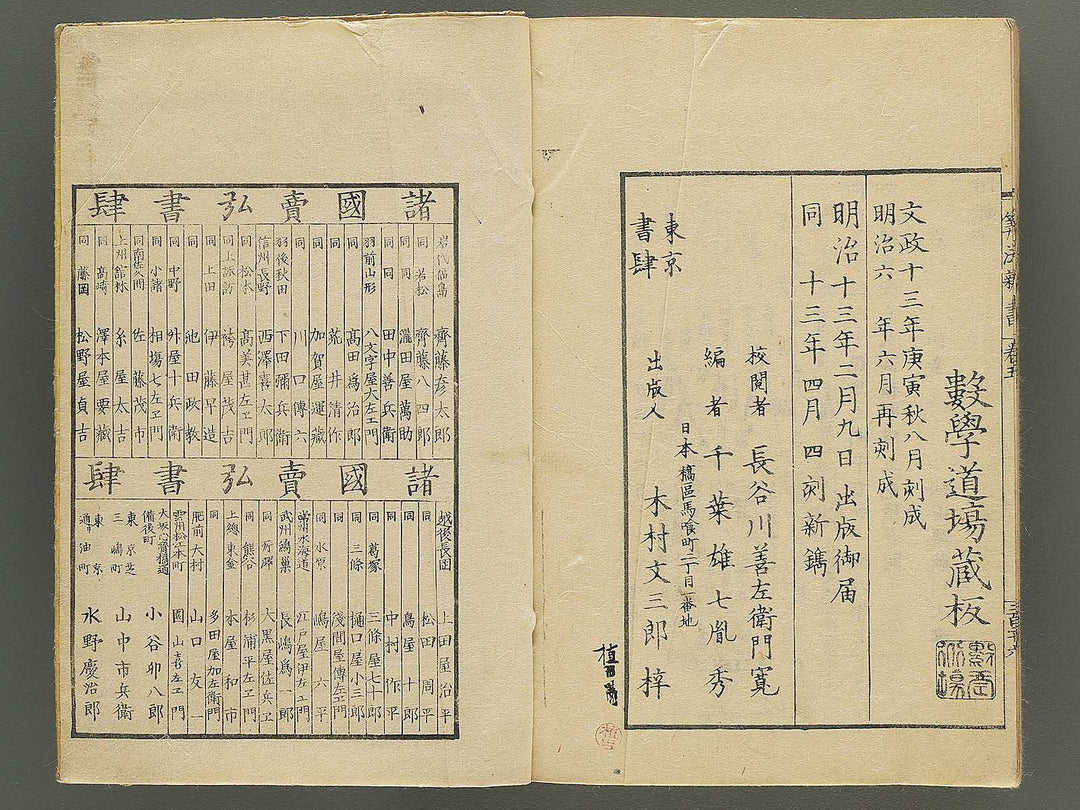 數學道場藏板
文政十三年庚寅秋八月刻成
明治六年六月再刻成
明治十三年二月九日出版御届
同 十三年四月 四刻新鐫
校閲者 長谷川善左衛門寬
編者 千葉雄七胤秀
日本橋區馬喰町二丁目一番地
出版人 木村文三郎梓
東京
書肆
諸國賣弘書肆
岩代福島 齊藤彦太郎
同 若松 齊藤八四郎
同 同 瀧田屋萬助
同 同 田中善兵衛
羽前山形 八文字屋太左エ門
同 髙田爲治郎
同 荒井清作
同 加賀屋運藏
同 川口傳六
羽後秋田 下田彌兵衛
信州長野 西澤喜太郎
同 松本 髙美甚左エ門
同 上諏訪 袴屋茂吉
同 上田 伊藤甲造
同 同 池田政教
同 中野 外屋十兵衛
同 小諸 相塲七左エ門
同 南佐久間 佐藤茂市
上州舘林 糸屋太吉
同 髙崎 澤本屋要藏
同 藤岡 松野屋貞吉
諸國賣弘書肆
越後長岡 上田屋治平
同 松田周平
同 鳥屋十郎
同 中村作平
同 葛塚 三條屋七十郎
同 三條 樋口小三郎
同 同 淺間屋傳左エ門
同 水原 嶋屋六平
常州水海道 江戸屋伊左エ門
武州鴻巣 長嶋爲一郎
同 所澤 大黒屋佐兵エ
同 熊谷 杉浦平左エ門
上總東金 本屋和市
同 多田屋加左衛門
肥前大村 山口友一
雲州松江本町 園山喜左エ門
大坂心齋橋通
備後町 小谷卯八郎
東京芝
三嶋町 山中市兵衛
東京
通リ油町 水野慶治郎